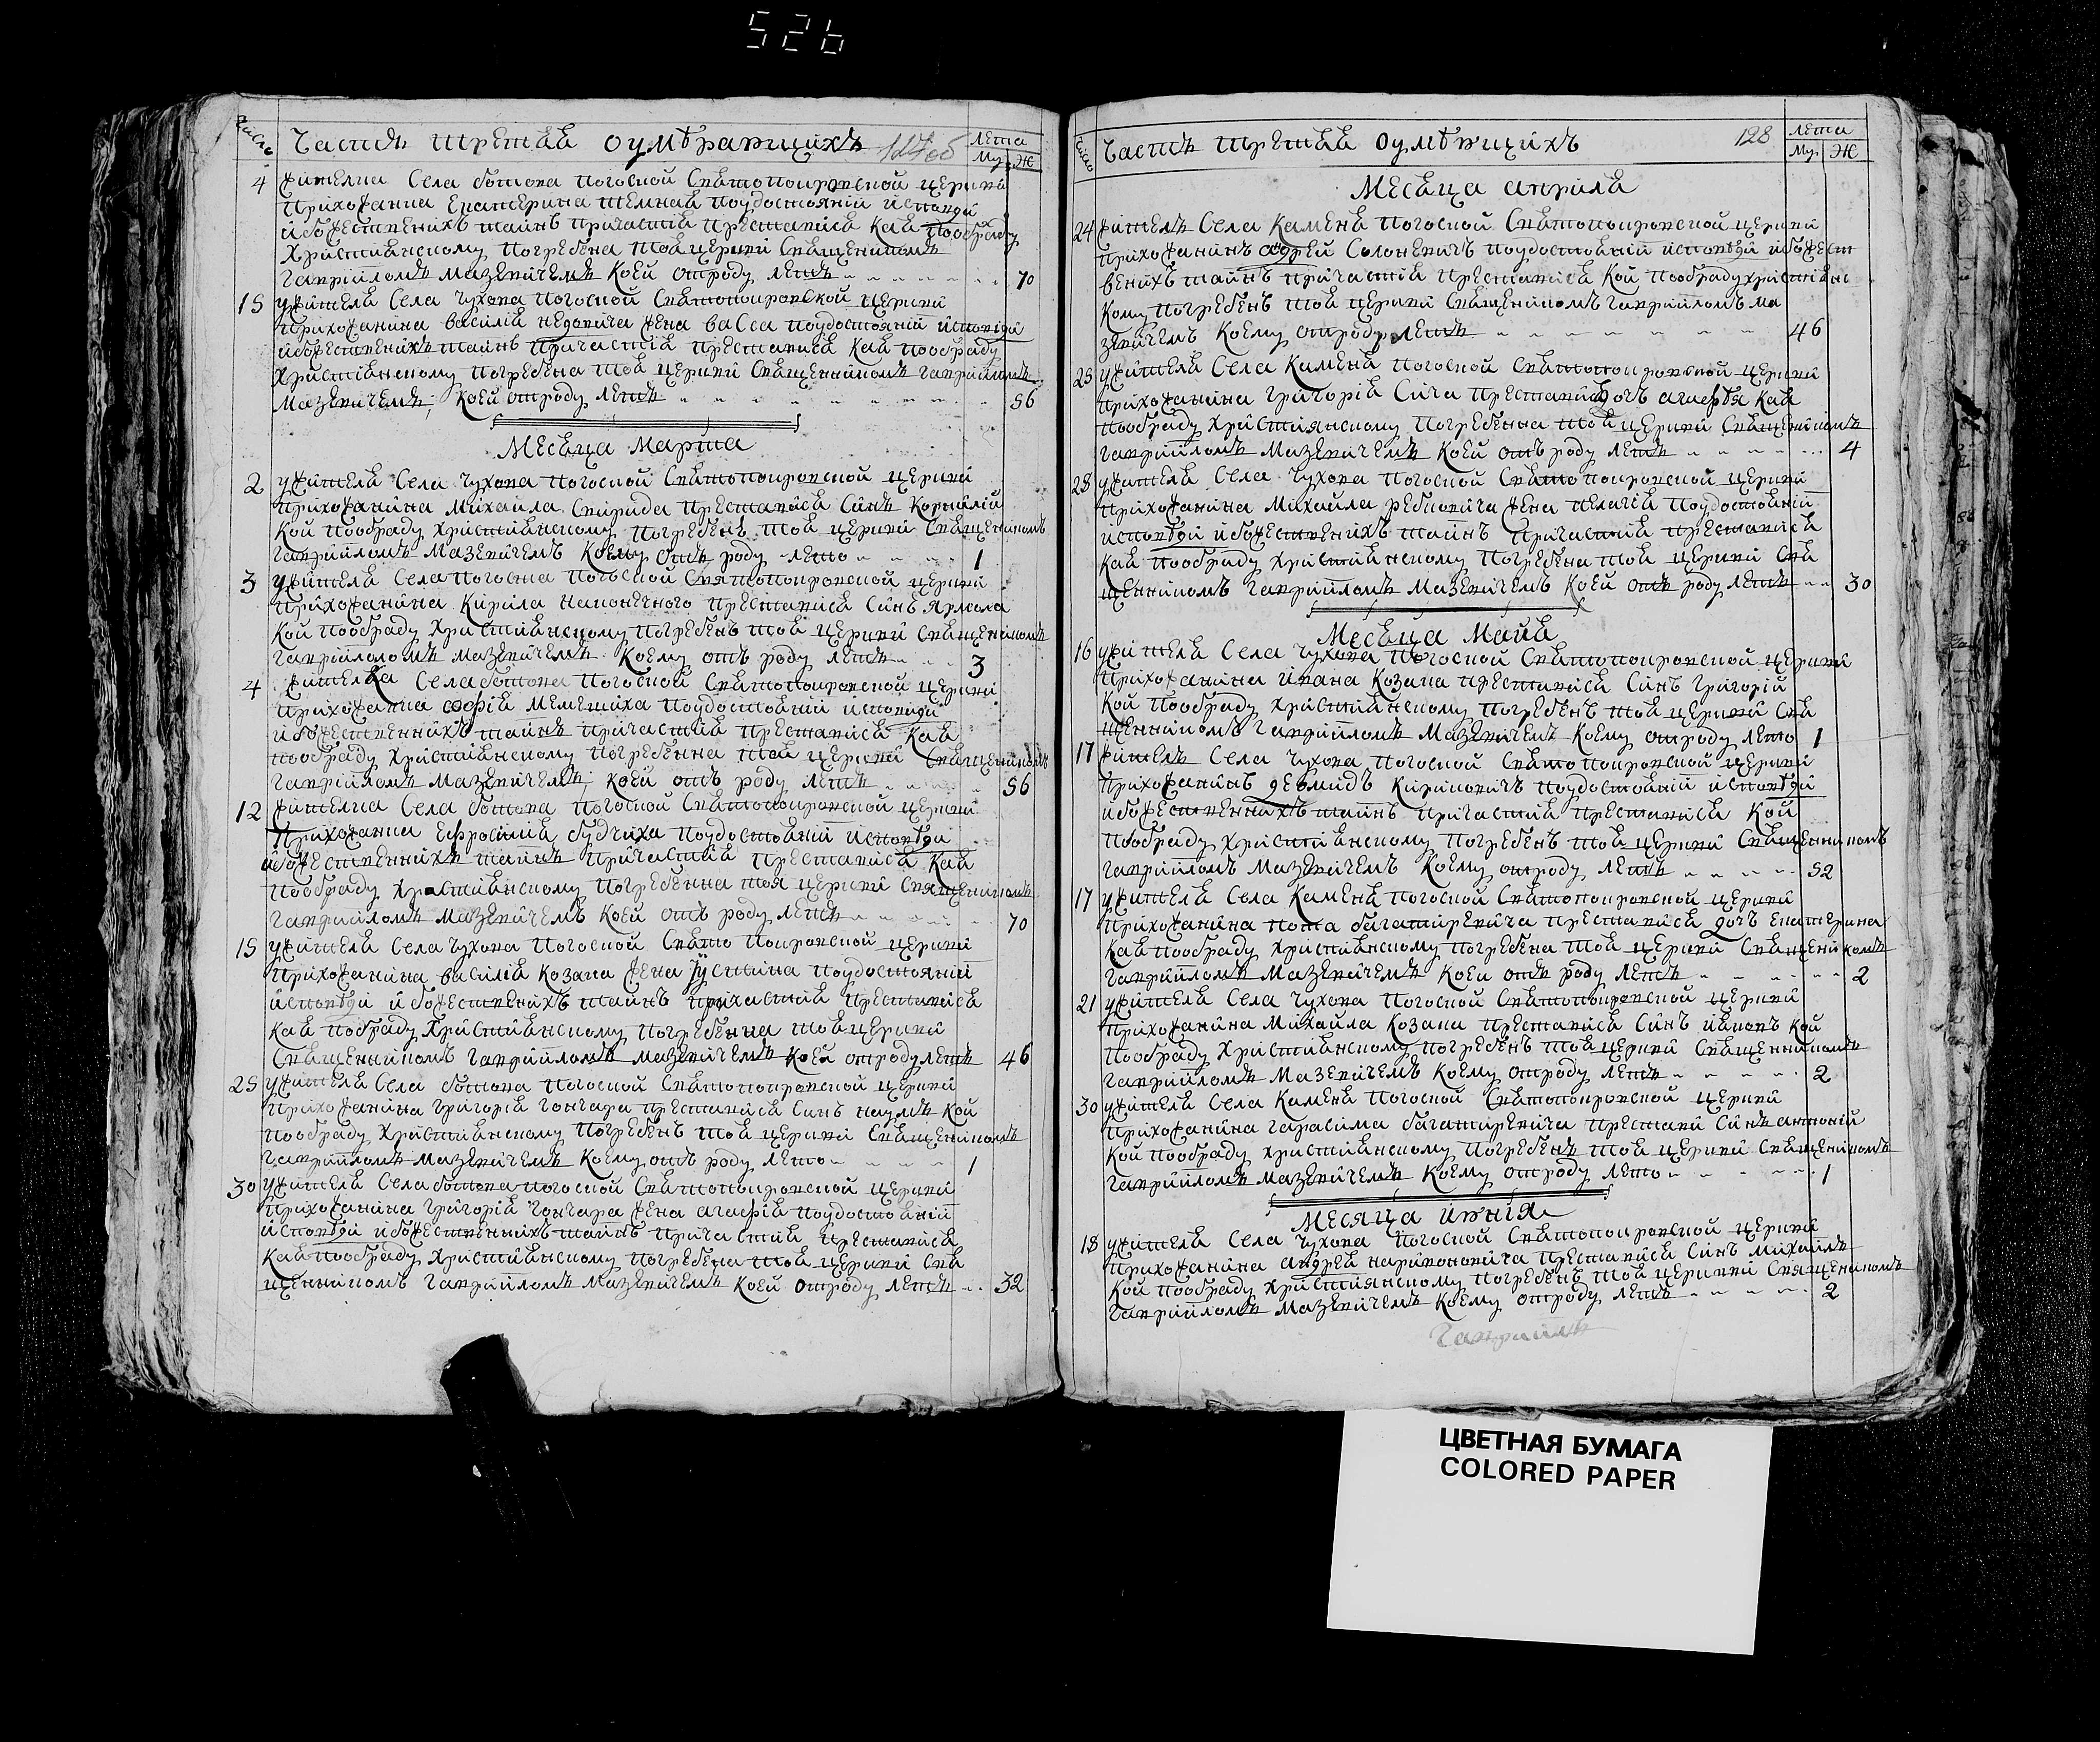 526
Число
Часть третая оумѣравшихъ
127об
Лета
Му: Ж
4 Жителка Села ботова Погосной Святопокровской церкви
Прихожанка Екатерина темная поудостояній исповѣди
и божественихъ тайнъ причастія преставися Кая пообряду
Христіанскому погребена тоя церкви Священикомъ
Гавріиломъ Мазевичемъ Коей отроду летъ 70
15 У Жителя Села Чухова Погосной Святопокровской церкви
Прихожанина василія недовича жена васса поудостояній исповѣди
и божественихъ тайнъ Причастія преставися Кая пообряду
Христіанскому погребена тоя церкви Священникомъ гавріиломъ
Мазевичемъ, Коей отроду летъ 56
Месяца Марта
2 У Жителя Села Чухова Погосной Святопокровской церкви
Прихожанина Михаила Свирида Преставися Синъ Корнилій
Кой пообряду Христіанскому погребенъ тоя церкви Священикомъ
Гавріиломъ Мазевичемъ Коему отъ роду лето 1
3 У Жителя Села Погоста Погосной Святопокровской церкви
Прихожанина Кирила наконечного преставися Синъ Ярмола
Кой пообряду Христіанскому погребенъ тоя церкви Священикомъ
Гавріилоломъ Мазевичемъ Коему отъ роду летъ 3
4 Жителка Села ботова Погосной Святопокровской церкви
Прихожанка софія Мелешиха поудостояній исповиди
и божественнихъ тайнъ причастія преставися Кая
пообряду Христіанскому погребенна тоя церкви Священикомъ
гавріиломъ Мазевичемъ, Коей отъ роду летъ 56
12 Жителка Села ботова Погосной Святопокровской церкви
Прихожанка Ефросинія будчиха поудостояній исповѣди
и божественнихъ тайнъ причастія преставися Кая
пообряду Христіанскому погребенна тоя церкви Священикомъ
Гавріиломъ Мазевичемъ Коей отъ роду летъ 70
15 У Жителя Села Чухова Погосной Свято Покровской церкви
Прихожанина василія Козака жена Іустина поудостояній
исповѣди и божественихъ тайнъ причастія преставися
Кая побряду Христіанскому погребенна тоя церкви
Священникомъ гавріиломъ мазевичемъ Коей отроду летъ 46
25 У Жителя Села ботова Погосной Святопокровской церкви
Прихожанина григорія гончара преставися Синъ наумъ Кой
пообряду Христіанскому погребенъ тоя церкви Священикомъ
гавріиломъ Мазевичемъ Коему отъ роду лето 1
30 У Жителя Села ботова погосной Святопокровской церкви
прихожанина григорія гончара жена агафія поудостояній
исповѣди и божественнихъ тайнъ причастія преставися
Кая пообряду Христіанскому погребена тоя церкви Свя
щенникомъ гавріиломъ Мазевичемъ Коей отроду летъ 32
Число
Часть третая оумѣвшихъ
128
Лета
Му: Ж
Месяца априля
24 Житель Села Каменя Погосной Святопокровской церкви
прихожанинъ адрей Солоневичъ поудостояній исповѣди и божест
венихъ тайнъ причастія преставися Кой пообряду христіанс
Кому погребенъ тоя церкви Священикомъ Гавріиломъ ма
зевичемъ Коему отроду летъ 46
25 У Жителя Села Каменя Погосной Святопокровской церкви
прихожанина григорія Сича преставися дочъ агафія Кая
пообряду Христіянскому погребенна тоя церкви Священикомъ
гавріиломъ Мазевичемъ Коей отъ роду летъ 4
28 У Жителя Села Чухова Погосной Святопокровской церкви
Прихожанина Михаила ребковича жена пелагія поудостояній
исповѣди и божественихъ тайнъ причастія преставися
Кая пообряду Христіанскому погребена тоя церкви Свя
щенникомъ гавріиломъ Мазевичемъ Коей отъ роду летъ 30
Месяца Мая
16 У Жителя Села Чухова Погосной Святопокровской церкви
Прихожанина ивана Козака преставися Синъ григорій
Кой пообряду Христіанскому погребенъ тоя церкви Свя
щенникомъ Гавріиломъ Мазевичемъ Коему отроду лето 1
17 Житель Села Чухова Погосной Святопокровской церкви
прихожанинъ демидъ Кириковичъ поудостояній исповѣди
и божественнихъ тайнъ причастія преставися Кой
пообряду Христіанскому погребенъ тоя церкви Священникомъ
гавріиломъ Мазевичемъ Коему отроду летъ 52
17 У Жителя Села Каменя Погосной Святопокровской церкви
прихожанина пота багатиревича преставися дочъ Екатерина
Кая пообряду Христіанскому погребена тоя церкви Священикомъ
гавріиломъ Мазевичемъ Коей отъ роду летъ 2
21 У Жителя Села Чухова Погосной Святопокровской церкви
прихожанина Михаила Козака преставися Синъ иаковъ Кой
пообряду Христіанскому погребенъ тоя церкви Священникомъ
гавріиломъ Мазевичемъ Коему отроду летъ 2
30 У Жителя Села Каменя Погосной Святопокровской церкви
прихожанина гарасима багатиревича престави Синъ антоній
Кой пообряду христіанскому погребенъ тоя церкви Священикомъ
гавріиломъ Мазевичемъ Коему отроду лето 1
Месяца июнія
18 У Жителя Села Чухова Погосной Святопокровской церкви
прихожанина андрея нарИвоновича преставися Синъ михаилъ
Кой пообряду Христіянскому погребенъ тоя церкви Священикомъ
гавріиломъ Мазевичемъ Коему отроду летъ 2
Гавріилъ
ЦВЕТНАЯ БУМАГА
COLORED PAPER